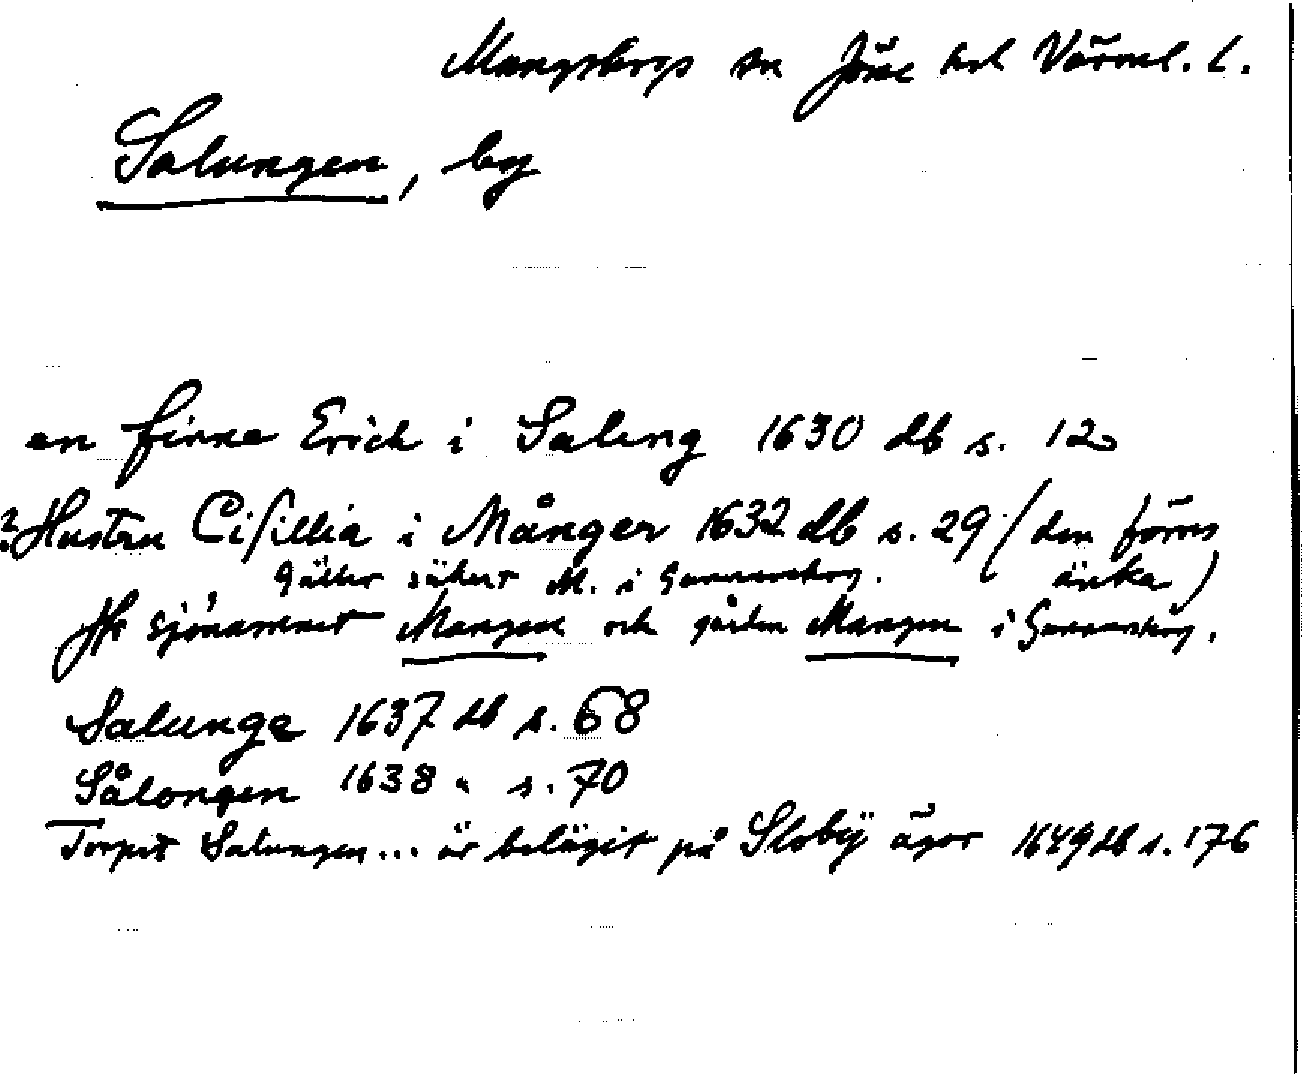 Mangskogs sn Jösse hd Värml. l.
Salungen, by
en finne Erich i Salung 1630 db s. 12
? Hustru Cisillia i Månger 1632 db s. 29 (den förres
gäller säkert M. i Gunnarskog. änka)
Jfr sjönamnet Mangen och gården Mangen i Gunnarskog.
Salunge 1637 db s. 68
Sålongen 1638 " s. 70
Torpet Salungen... är beläget på Skobÿ ägor 1649 db s. 176